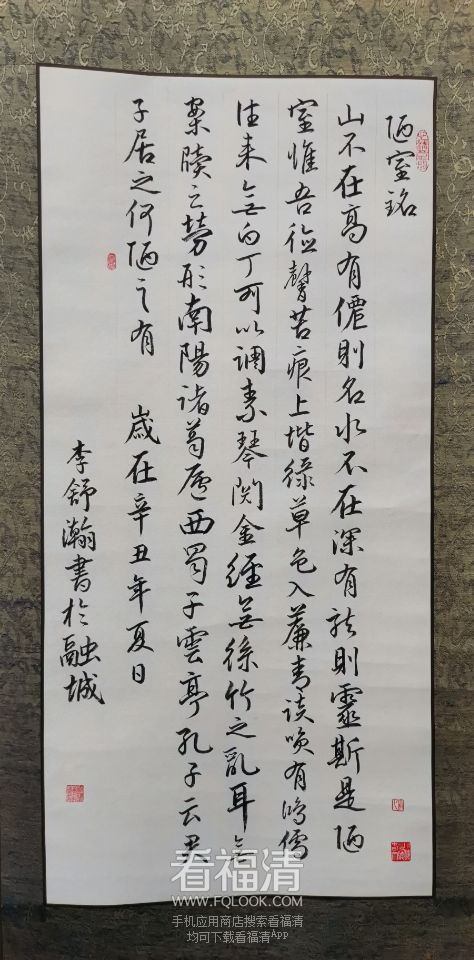 陋室銘
山不在高有僊則名水不在深有龙則靈斯是陋
室惟吾德馨苔痕上堦綠草色入簾青談咲有鸿儒
往来無白丁可以调素琴阅金經無絲竹之亂耳無
案牘之勞形南陽諸葛廬西蜀子雲亭孔子云君
子居之何陋之有 歲在辛丑年夏日
李舒瀚書於融城
看福清
WWW.FQLOOK.COM
手机应用商店搜索看福清
均可下载看福清App